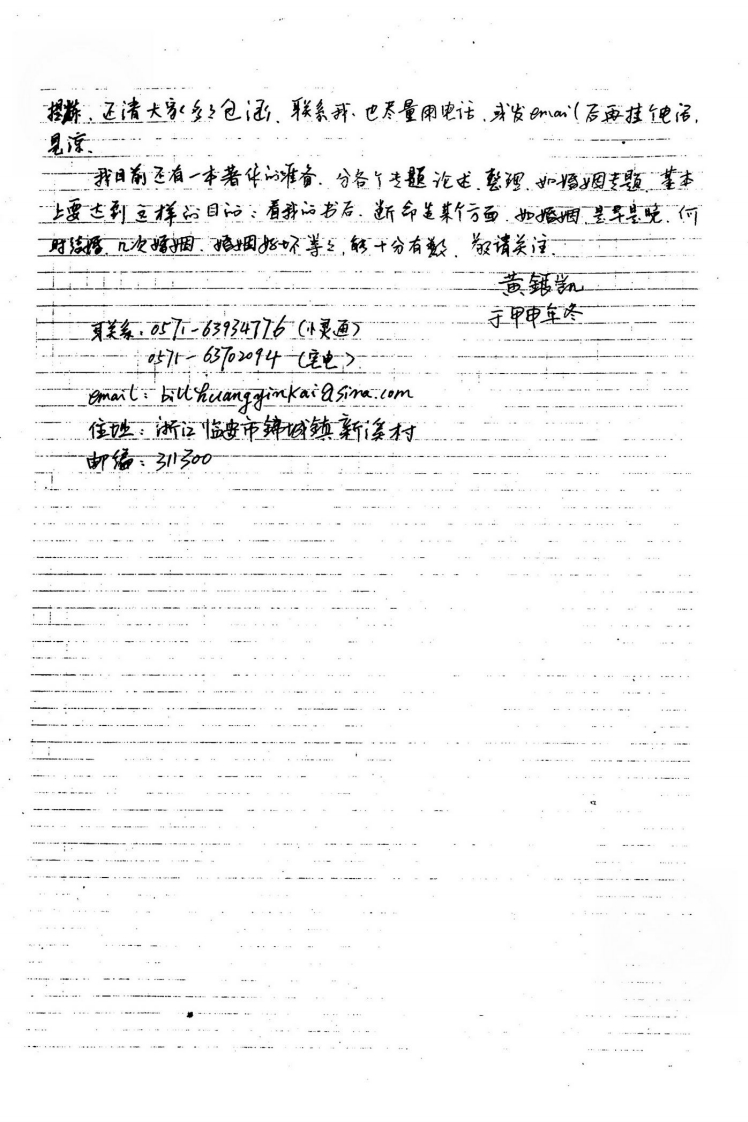 还请大家多多包涵，联系我，也尽量用电话，或发email后再挂个电话，
见谅.
我目前还有一本著作的准备，分各个专题论述、整理，如婚姻专题，基本
上要达到这样的目的：看我的书后，断命造某个方面，如婚姻，是早是晚，何
时结婚，几次婚姻，婚姻好坏等等，能十分有数，敬请关注.
黄银凯
于甲申年冬
联系：0571-63934776（小灵通）
0571-63702094（宅电）
email：billhuangyinkai@sina.com
住址：浙江临安市锦城镇新溪村
邮编：311300